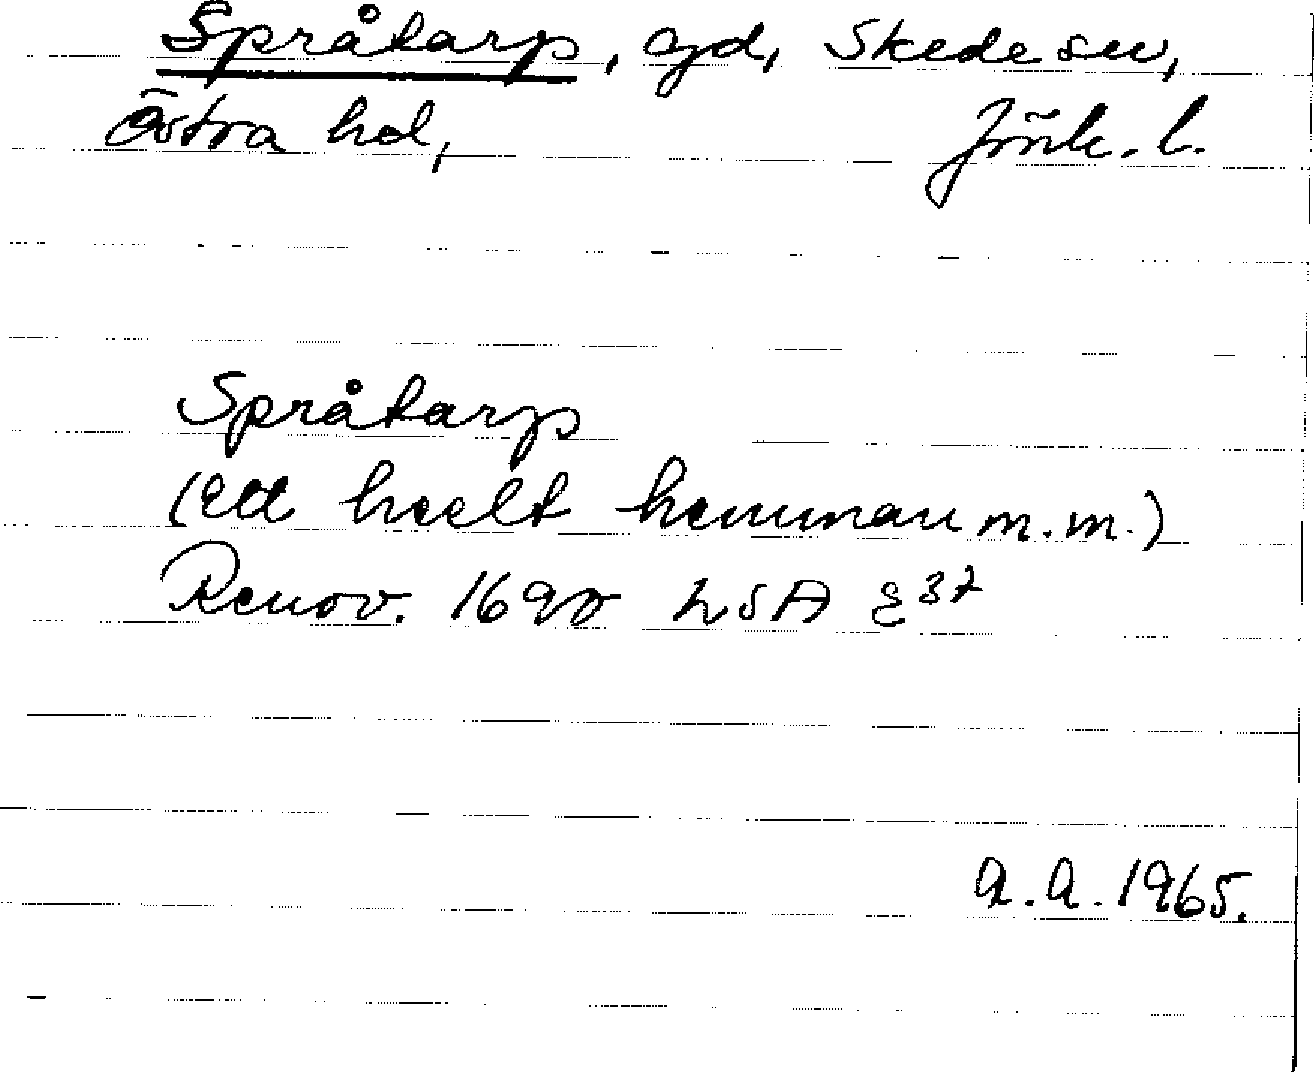 Språtarp, gd, Skede sn,
Östra hd, Jönk. l.
Språtarp
(Ett heelt hemman m.m.)
Renov. LSA E 37
A.A. 1965.